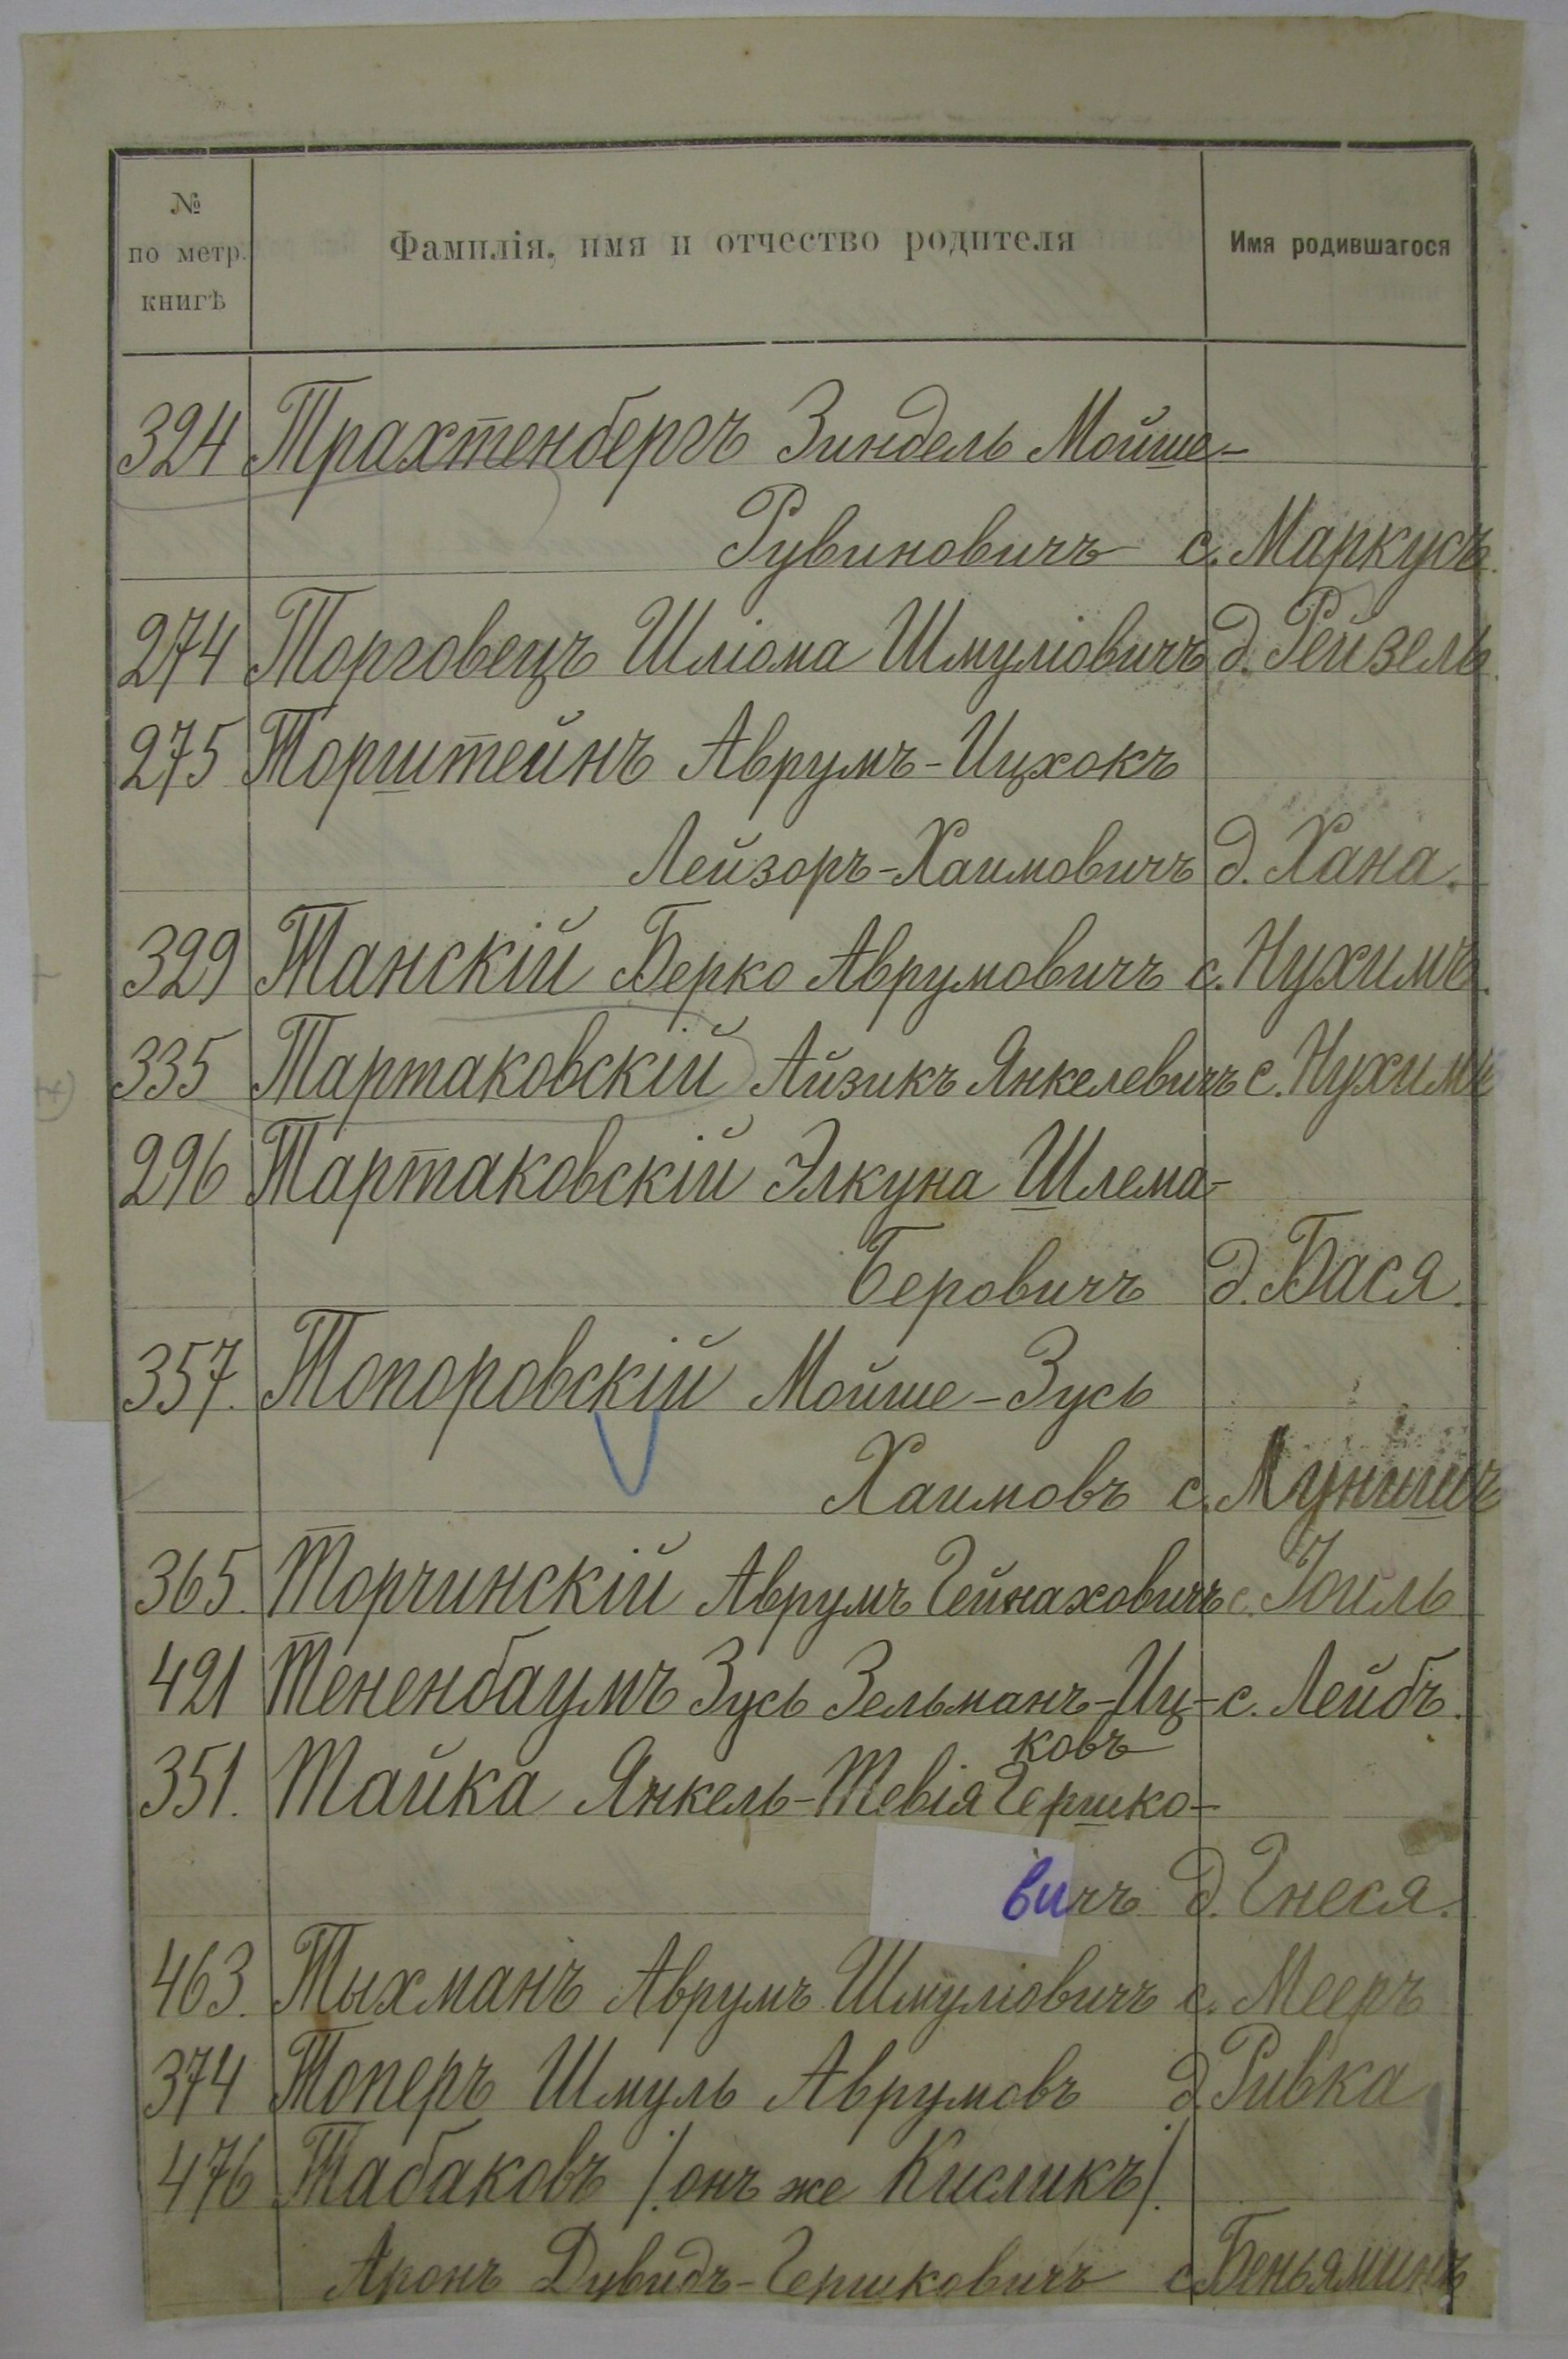 № по метр. книгѣ | Фамилія, имя и отчество родителя | Имя родившагося
324 Трахтенбергъ Зиндель Мойше-
Рувиновичъ с. Маркусъ.
274 Торговецъ Шліома Шмуліовичъ д. Рейзель.
275 Торштейнъ Аврумъ-Ицхокъ
Лейзоръ-Хаимовичъ д. Хана.
329 Танскій Берко Аврумовичъ с. Нухимъ.
335 Тартаковскій Айзикъ Янкелевичъ с. Нухимъ
296 Тартаковскій Элкуна Шлема-
Беровичъ д. Бася.
357. Топоровскій Мойше-Зусь
Хаимовъ с. Мунишъ
365. Торчинскій Аврумъ Гейнаховичъ с. Іоиль
421 Тененбаумъ Зусь Зельманъ-Иц- с. Лейбъ.
ковъ
351. Тайка Янкель-Тевія Гершко-
вичъ д. Гнеся.
463. Тыхманъ Аврумъ Шмуліовичъ с. Мееръ
374 Топеръ Шмуль Аврумовъ д. Ривка
476 Табаковъ /онъ же Кисликъ/.
Аронъ Дувидъ-Гершковичъ с. Беньяминъ